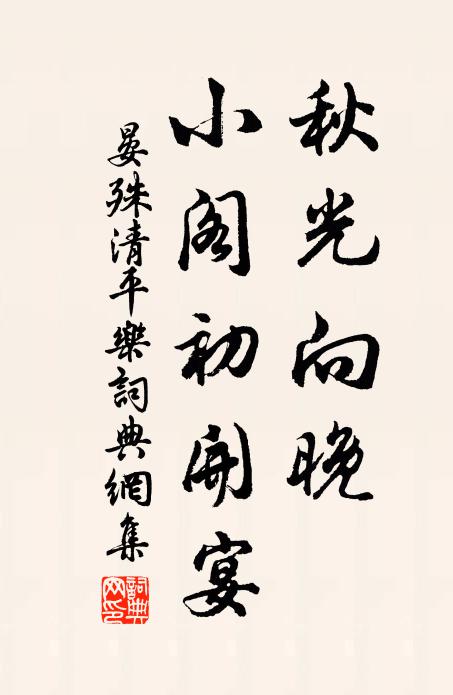 秋光向晚
小阁初开宴
晏殊清平樂詞典網集
詞典网印